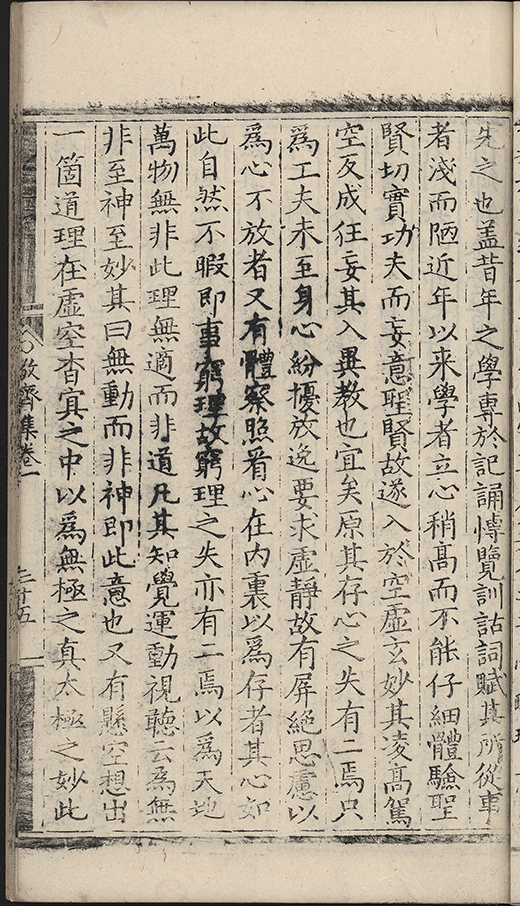 先之也盖昔年之學專於記誦博覽訓詁詞賦其所從事
者淺而陋近年以来學者立心稍髙而不能仔細體驗聖
賢切實功夫而妄意聖賢故遂入於空虛玄妙其凌髙駕
空反成狂妄其入異教也宜矣原其存心之失有二焉只
爲工夫未至身心紛擾放逸要求虛靜故有屏絶思慮以
爲心不放者又有體察照看心在内裏以爲存者其心如
此自然不暇即事窮理故窮理之失亦有二焉以爲天地
萬物無非此理無適而非道凡其知覺運動視聴云爲無
非至神至妙其曰無動而非神即此意也又有懸空想出
一箇道理在虛空杳㝠之中以爲無極之真太極之妙此
敬齋集卷一
二十五